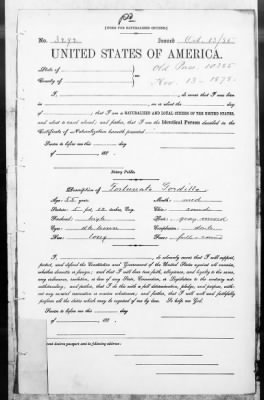 [FORM FOR NATURALIZED CITIZEN.]
No. 3292 Issued Oct. 13/85
UNITED STATES OF AMERICA.
State of
County of
Old Pass. 10385
Nov. 13 - 1878.
I, do swear that I was born
in on or about the day
of ; that I am a NATURALIZED AND LOYAL CITIZEN OF THE UNITED STATES,
and about to travel abroad; and further, that I am the Identical Person described in the
Certificate of Naturalization herewith presented
Sworn to before me this day
of 188 .
Notary Public.
Description of Fortunato Gordillo
Age: 55 years Mouth: med
Stature: 5 feet, inches, Eng. Chin: round
Forehead: high Hair: gray mixed
Eyes: dk brown Complexion: dark
Nose: long Face: full
I, do solemnly swear that I will support,
protect, and defend the Constitution and Government of the United States against all enemies,
whether domestic or foreign; and that I will bear true faith, allegiance, and loyalty to the same,
any ordinance, resolution, or law of any State, Convention, or Legislature to the contrary not-
withstanding; and further, that I do this with a full determination, pledge, and purpose, with-
out any mental reservation or evasion whatsoever; and further, that I will well and faithfully
perform all the duties which may be required of me by law. So help me God.
Sworn to before me this day
of 188 .
Send passport to the following address: